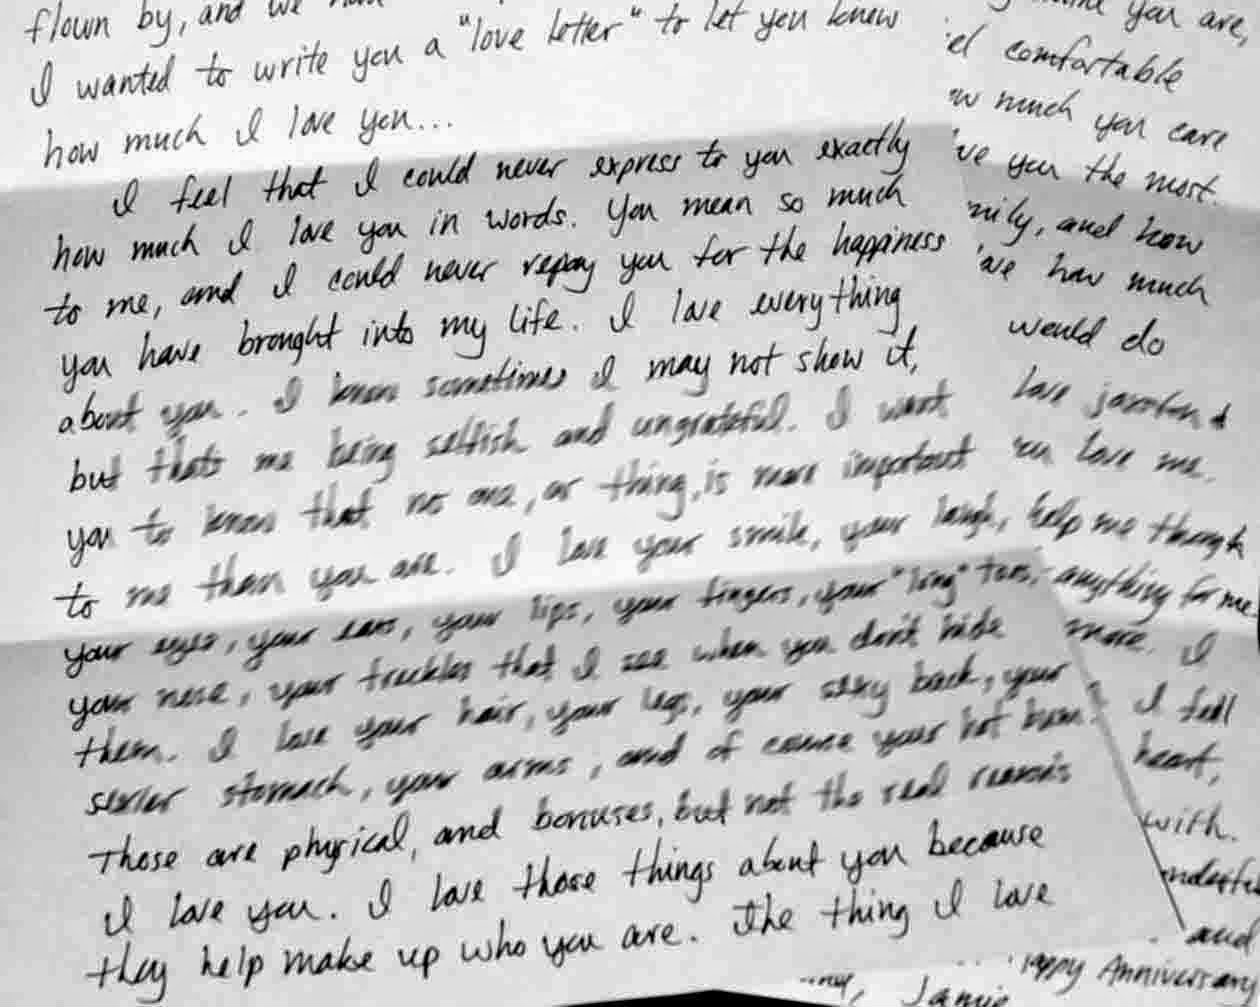 flown by, and we
I wanted to write you a "love letter" to let you know
how much I love you...
I feel that I could never express to you exactly
how much I love you in words. You mean so much
to me, and I could never repay you for the happiness
you have brought into my life. I love everything
about you. I know sometimes I may not show it,
but thats me being selfish and ungrateful. I want
you to know that no one, or thing, is more important
to me than you are. I love your smile, your laugh,
your eyes, your ears, your lips, your fingers, your "long" toes,
your nose, your freckles that I see when you don't hide
them. I love your hair, your legs, your sexy back, your
sexier stomach, your arms, and of course your hot bum.
Those are physical, and bonuses, but not the real reasons
I love you. I love those things about you because
they help make up who you are. The thing I love
you are,
comfortable
much you care
you the most.
and how
how much
would do
love
love me.
help me through
anything for me
more. I
I fall
heart,
with.
and
Anniversary
Jamie